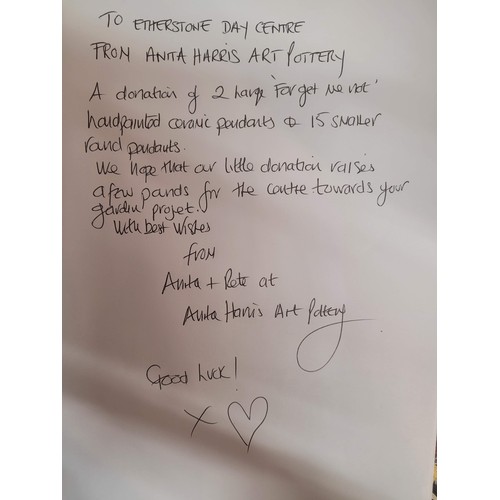 TO ETHERSTONE DAY CENTRE
FROM ANITA HARRIS ART POTTERY
A donation of 2 large 'Forget me not'
handpainted ceramic pendants & 15 smaller
round pendants.
We hope that our little donation raises
a few pounds for the centre towards your
garden projet.
With best wishes
from
Anita + Pete at
Anita Harris Art Pottery
Good Luck!
X ♡